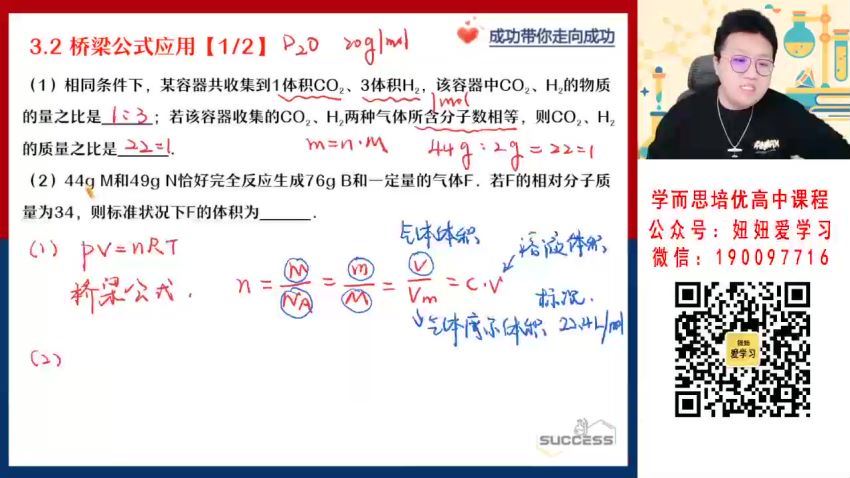 3.2 桥梁公式应用【1/2】 D₂O 20g/mol
成功带你走向成功
(1) 相同条件下，某容器共收集到1体积CO₂、3体积H₂，该容器中CO₂、H₂的物质
的量之比是 1:3 ；若该容器收集的CO₂、H₂两种气体所含分子数相等，则CO₂、H₂
1mol
的质量之比是 22:1 .
m=n·M 44g:2g=22:1
(2) 44g M和49g N恰好完全反应生成76g B和一定量的气体F．若F的相对分子质
量为34，则标准状况下F的体积为______．
(1) PV=nRT
桥梁公式.
气体体积
溶液体积
n = N/N_A = m/M = V/Vm = c·V
标况.
气体摩尔体积 22.4L/mol
(2)
SUCCESS
学而思培优高中课程
公众号：妞妞爱学习
微信：190097716
妞妞
爱学习